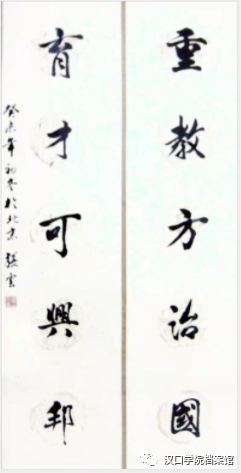 重教方治國
育才可興邦
癸未年初冬於北京 張雲
汉口学院档案馆